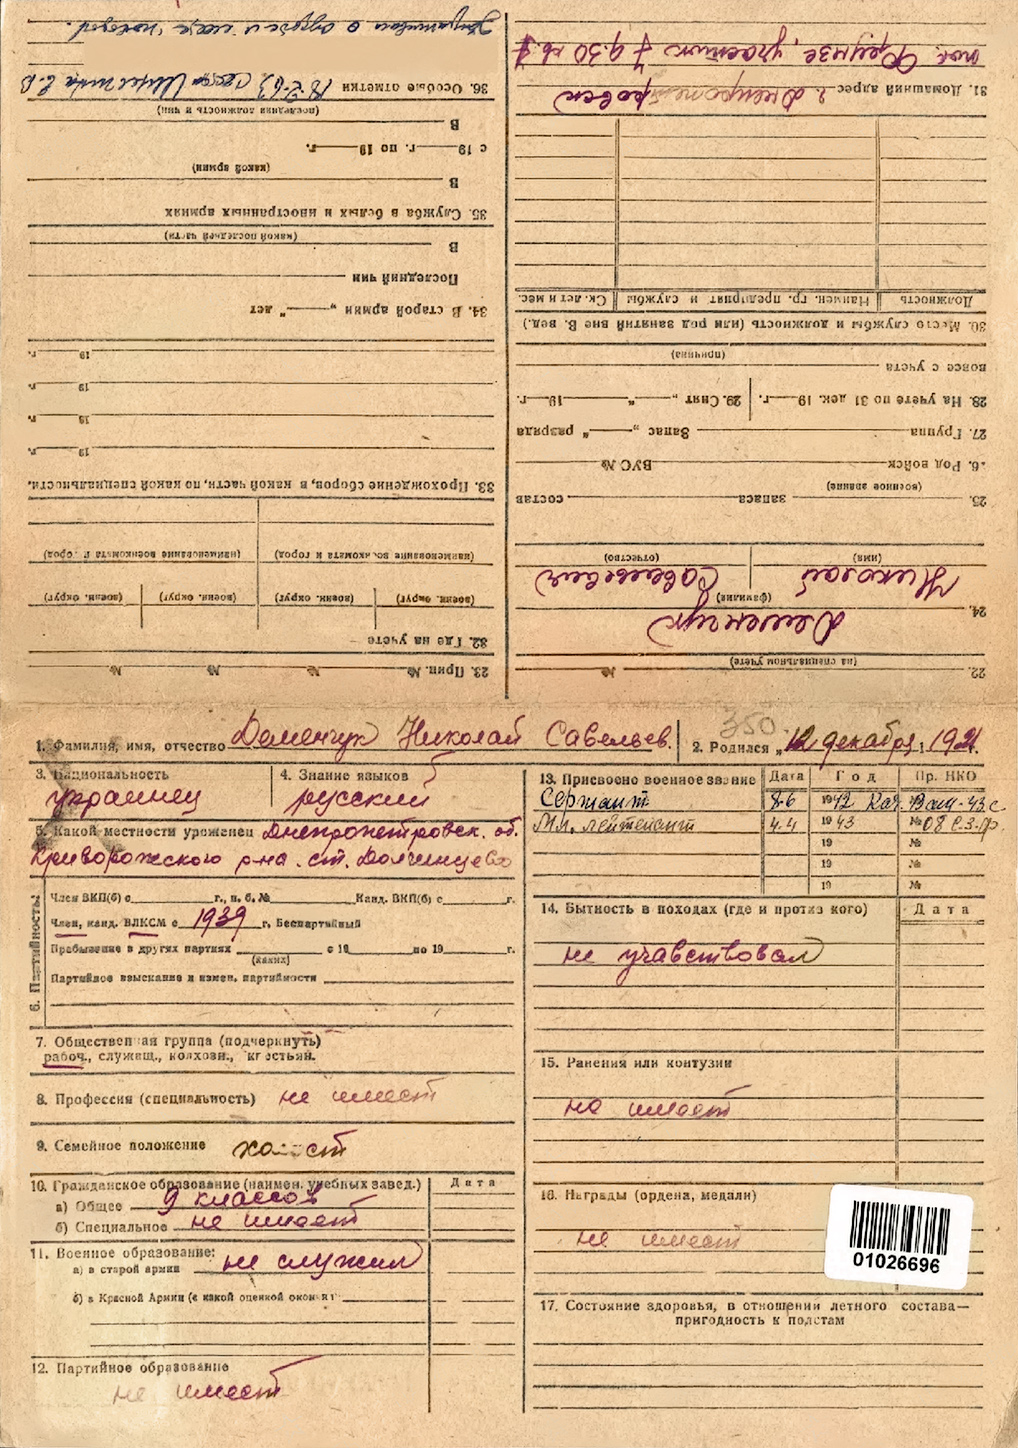 1. Фамилия, имя, отчество Деменчук Николай Савельев.
2. Родился „12 декабря 1921 г.
350
3. Национальность
украинец
4. Знание языков
русский
5. Какой местности уроженец Днепропетровск. об.
Криворожского р-на. ст. Долгинцево
6. Партийность:
Член ВКП(б) с г., п. б. № Канд. ВКП(б) с г.
Член, канд. ВЛКСМ с 1939 г, Беспартийный
Пребывание в других партиях с 19 по 19 г.
(каких)
Партийное взыскание и измен. партийности
7. Общественная группа (подчеркнуть)
рабоч., служащ., колхозн., крестьян.
8. Профессия (специальность) не имеет
9. Семейное положение холост
10. Гражданское образование (наимен. учебных завед.) Дата
а) Общее 9 классов
б) Специальное не имеет
11. Военное образование:
а) в старой армии не служил
б) в Красной Армии (с какой оценкой окончил)
12. Партийное образование
не имеет
13. Присвоено военное звание Дата Год Пр. НКО
Сержант 8.6 1942
Мл. лейтенант 4.4 1943 № 08
19 №
19 №
19 №
14. Бытность в походах (где и против кого) Дата
не учавствовал
15. Ранения или контузии
не имеет
16. Награды (ордена, медали)
не имеет
01026696
17. Состояние здоровья, в отношении летного состава—
пригодность к полетам
22. №
(на специальном учете)
24. Деменчук
(фамилия)
Николай Савельевич
(имя) (отчество)
25. запаса состав
(военное звание)
26. Род войск ВУС №
27. Группа Запас „ “ разряда
28. На учете по 31 дек. 19 г. 29. Снят „ “ 19 г.
вовсе с учета
(причина)
30. Место службы и должность (или род занятий вне В. вед.)
Должность Наимен. гр. предприят и службы Ск. лет и мес.
31. Домашний адрес г. Днепропетровск
пос. Фрунзе, участок 7 д. 30 кв. 1
23. Прип. № № № №
32. Где на учете
(воен. округ) (воен. округ) (воен. округ) (воен. округ)
(наименование военкомата и город) (наименование военкомата и город)
33. Прохождение сборов, в какой части, по какой специальности.
19 г.
19 г.
19 г.
19 г.
34. В старой армии „ “ лет
Последний чин
В
(какой последней части)
35. Служба в белых и иностранных армиях
В
(какой армии)
с 19 г. по 19 г.
В
(последняя должность и чин)
36. Особые отметки 18-2-63